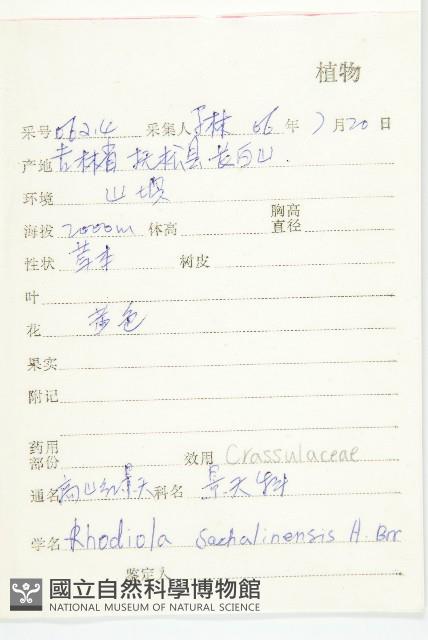 植物
采号 0624 采集人 于林 06 年 7 月 20 日
产地 吉林省 抚松县 长白山.
环境 山坝
海拔 2000m 体高 胸高直径
性状 草本 树皮
叶
花 黄色
果实
附记
药用部份 效用 Crassulaceae
通名 高山红景天 科名 景天科
学名 Rhodiola Sachalinensis A. Bor
鉴定人
國立自然科學博物館
NATIONAL MUSEUM OF NATURAL SCIENCE